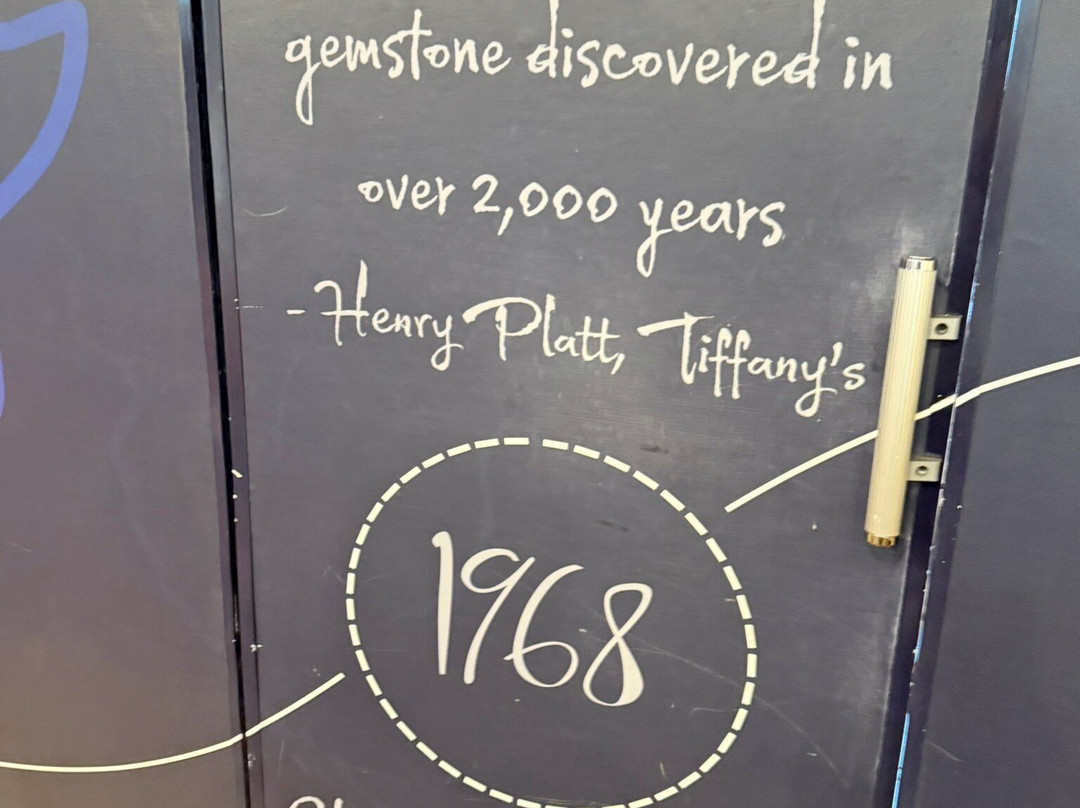 gemstone discovered in
over 2,000 years
- Henry Platt, Tiffany's
1968